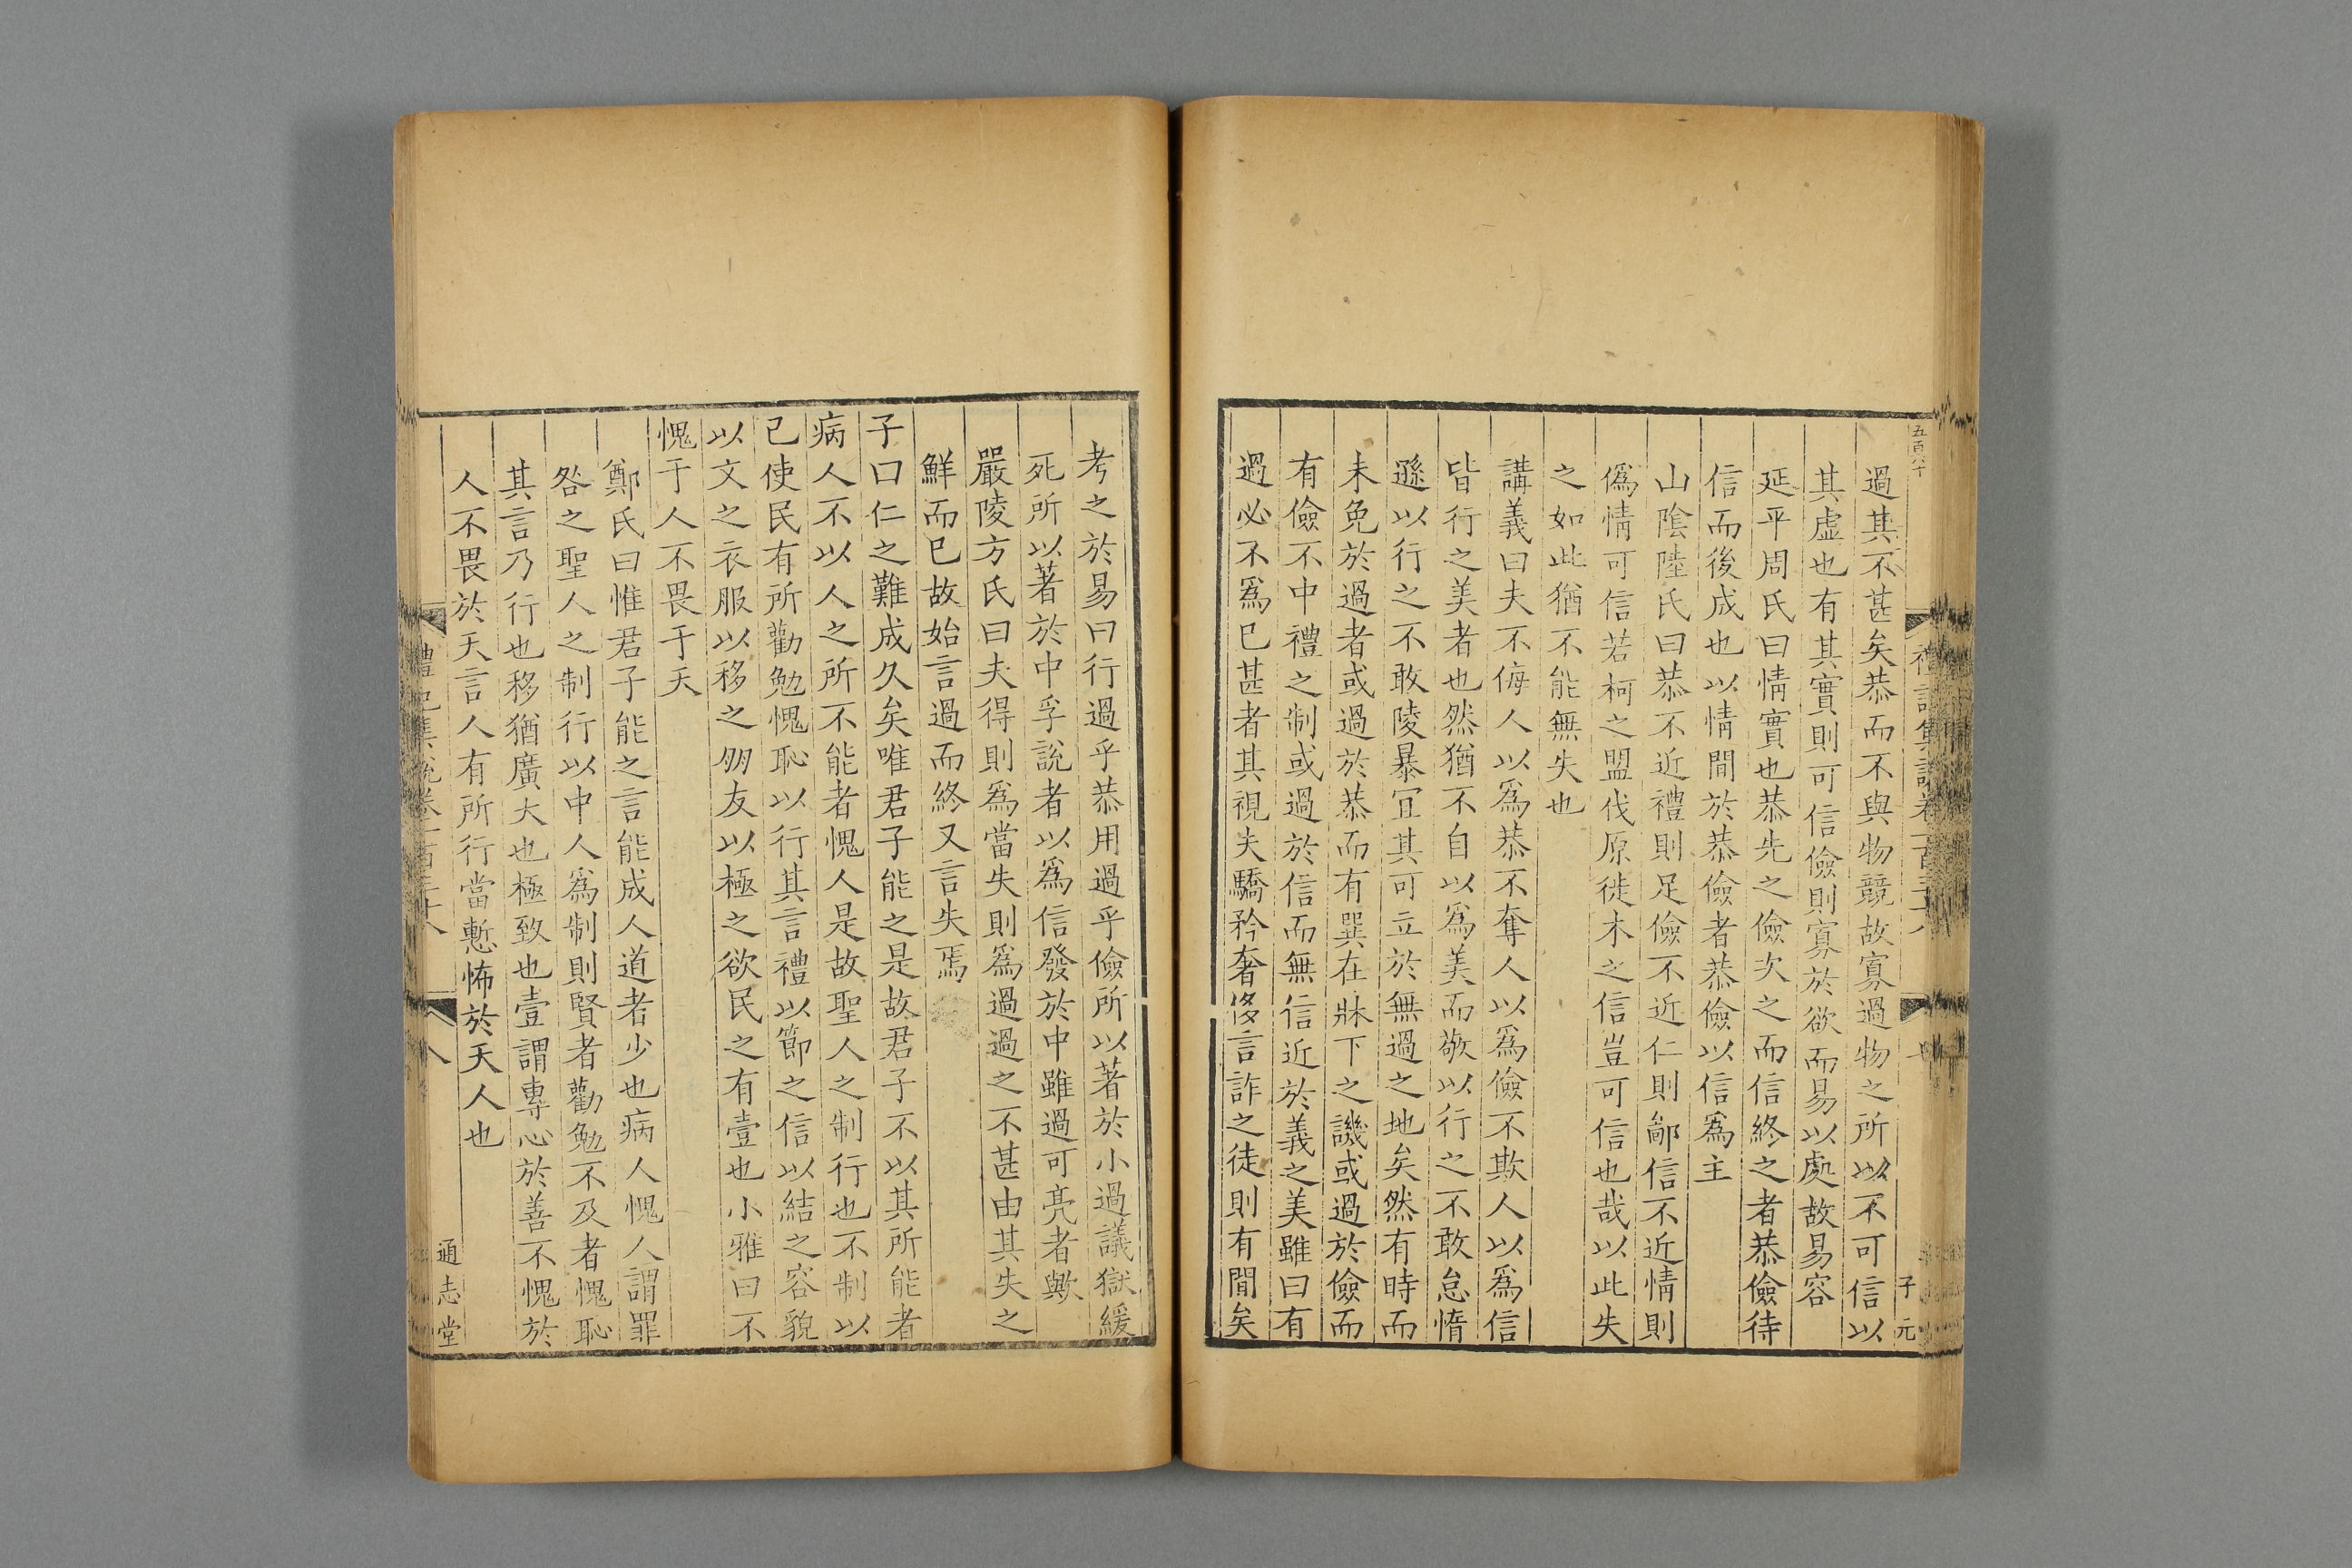 五百六十
子元
過其不甚矣恭而不與物競故寡過物之所以不可信以
其虛也有其實則可信儉則寡於欲而易以處故易容
延平周氏曰情實也恭先之儉次之而信終之者恭儉待
信而後成也以情間於恭儉者恭儉以信爲主
山隂陸氏曰恭不近禮則足儉不近仁則鄙信不近情則
僞情可信若柯之盟伐原徙木之信豈可信也哉以此失
之如此猶不能無失也
講義曰夫不侮人以爲恭不奪人以爲儉不欺人以爲信
皆行之美者也然猶不自以爲美而敬以行之不敢怠惰
遜以行之不敢陵暴宜其可立於無過之地矣然有時而
未免於過者或過於恭而有巽在牀下之譏或過於儉而
有儉不中禮之制或過於信而無信近於義之美雖曰有
過必不爲已甚者其視夫驕矜奢侈言詐之徒則有間矣
考之於易曰行過乎恭用過乎儉所以著於小過議獄緩
死所以著於中孚說者以爲信發於中雖過可亮者歟
嚴陵方氏曰夫得則爲當失則爲過過之不甚由其失之
鮮而已故始言過而終又言失焉
子曰仁之難成久矣唯君子能之是故君子不以其所能者
病人不以人之所不能者愧人是故聖人之制行也不制以
己使民有所勸勉愧恥以行其言禮以節之信以結之容貌
以文之衣服以移之朋友以極之欲民之有壹也小雅曰不
愧于人不畏于天
鄭氏曰惟君子能之言能成人道者少也病人愧人謂罪
咎之聖人之制行以中人爲制則賢者勸勉不及者愧恥
其言乃行也移猶廣大也極致也壹謂專心於善不愧於
人不畏於天言人有所行當慙怖於天人也
禮記集說卷一百三十八
八
通志堂